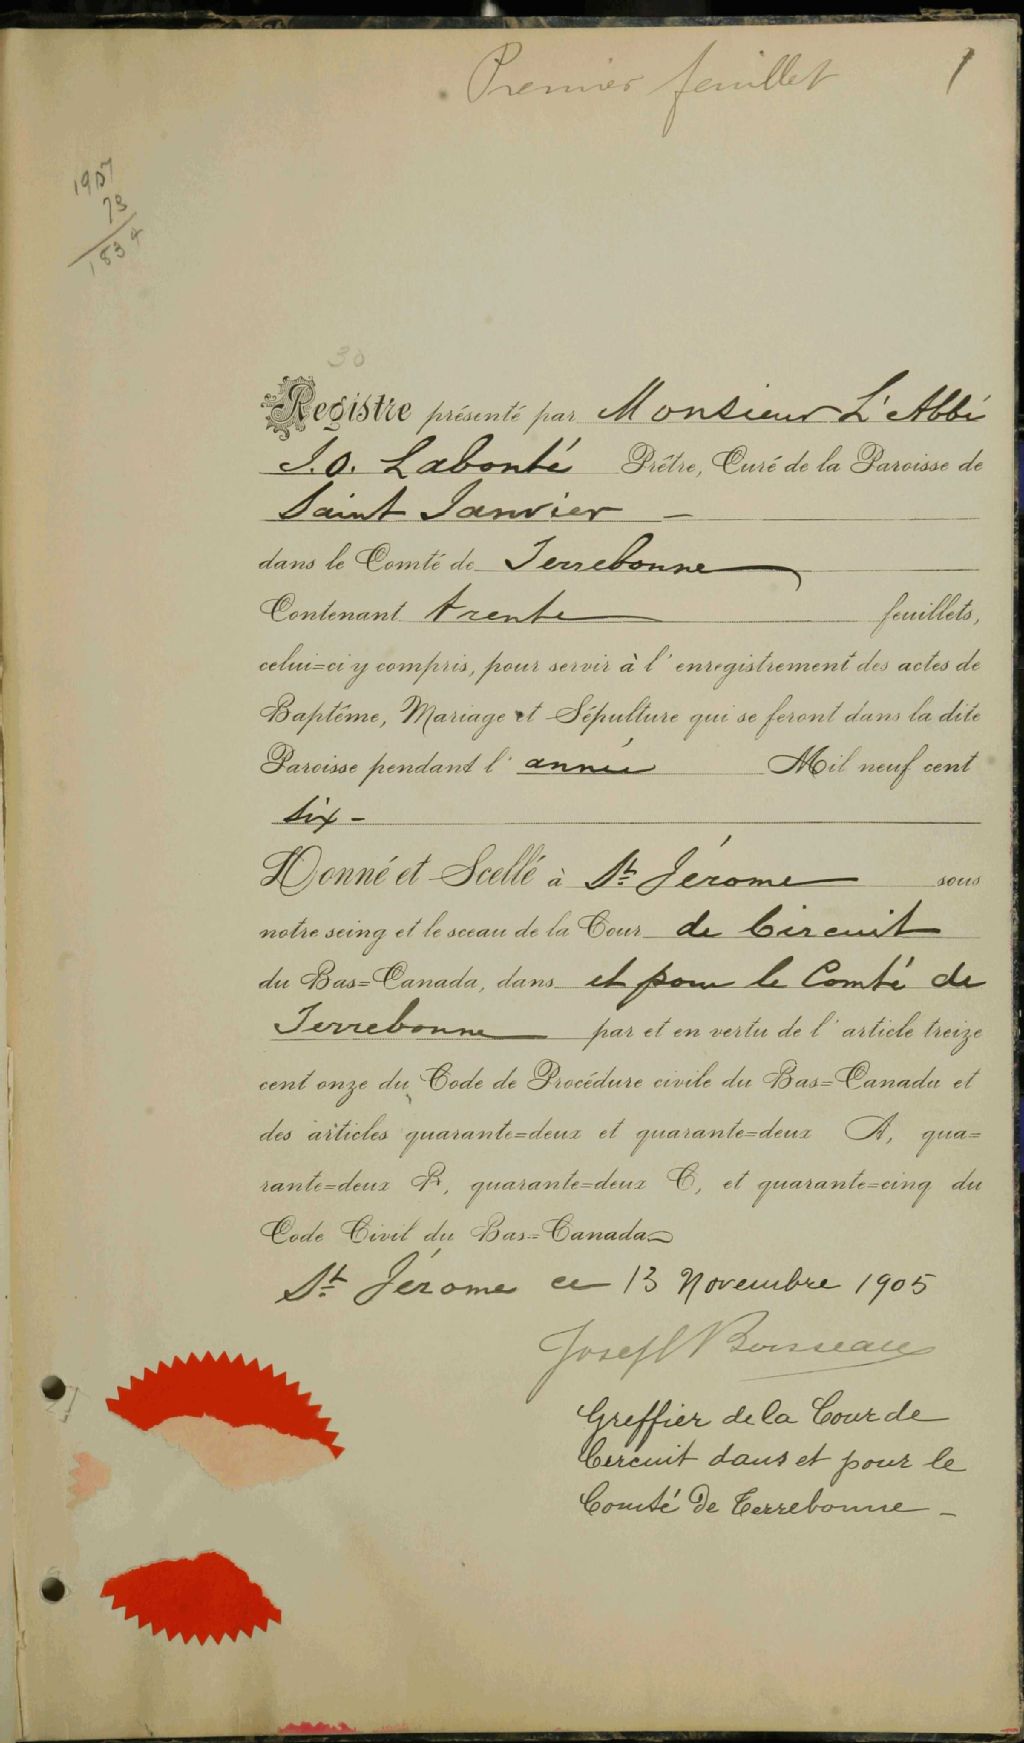 Premier feuillet 1
1907
73
1834
30
Registre présenté par Monsieur L'Abbé
J.O. Labonté Prêtre, Curé de la Paroisse de
Saint Janvier -
dans le Comté de Terrebonne
Contenant trente feuillets,
celui=ci y compris, pour servir à l'enregistrement des actes de
Baptême, Mariage et Sépulture qui se feront dans la dite
Paroisse pendant l'année Mil neuf cent
six -
Donné et Scellé à St Jérome sous
notre seing et le sceau de la Cour de Circuit
du Bas=Canada, dans et pour le Comté de
Terrebonne par et en vertu de l'article treize
cent onze du Code de Procédure civile du Bas=Canada et
des articles quarante=deux et quarante=deux A, qua=
rante=deux B, quarante=deux C, et quarante=cinq du
Code Civil du Bas=Canada
St Jérome ce 13 Novembre 1905
Joseph Boisseau
Greffier de la Cour de
Circuit dans et pour le
Comté De Terrebonne -